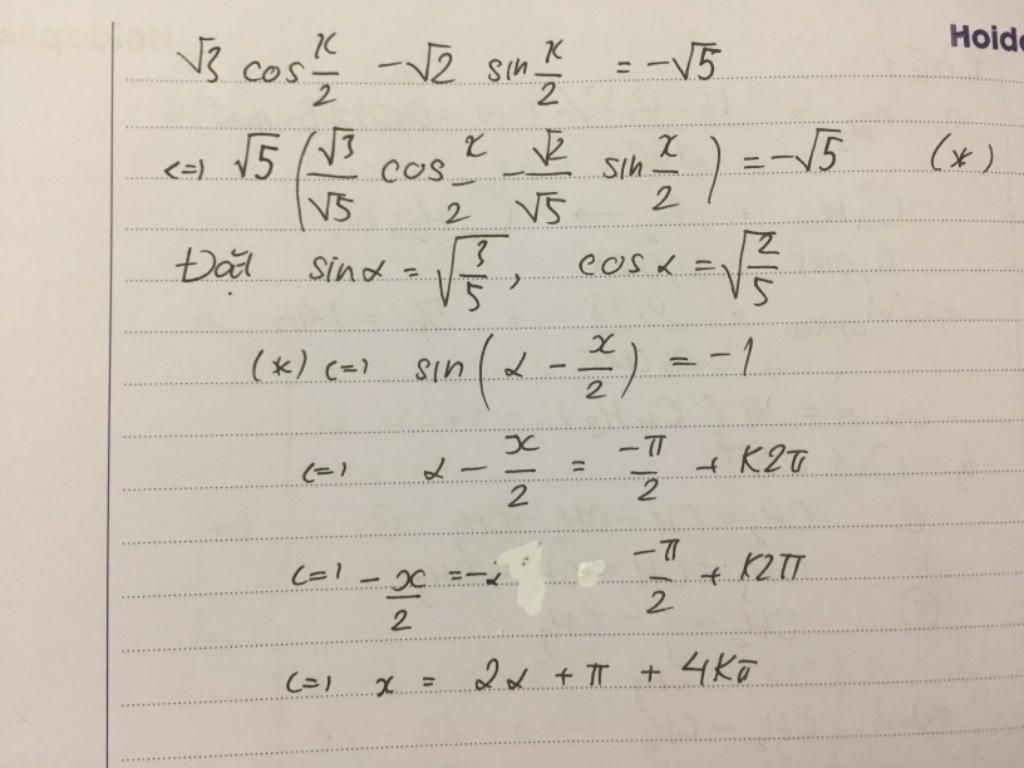 Hoido
√3 cos x/2 - √2 sin x/2 = -√5
<=> √5 (√3/√5 cos x/2 - √2/√5 sin x/2) = -√5 (*)
Đặt sinα = √(3/5), cosα = √(2/5)
(*) <=> sin(α - x/2) = -1
<=> α - x/2 = -π/2 + K2π
<=> -x/2 = -α -π/2 + K2π
<=> x = 2α + π + 4Kπ